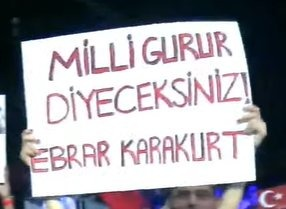 MİLLİ GURUR
DİYECEKSİNİZ!
EBRAR KARAKURT